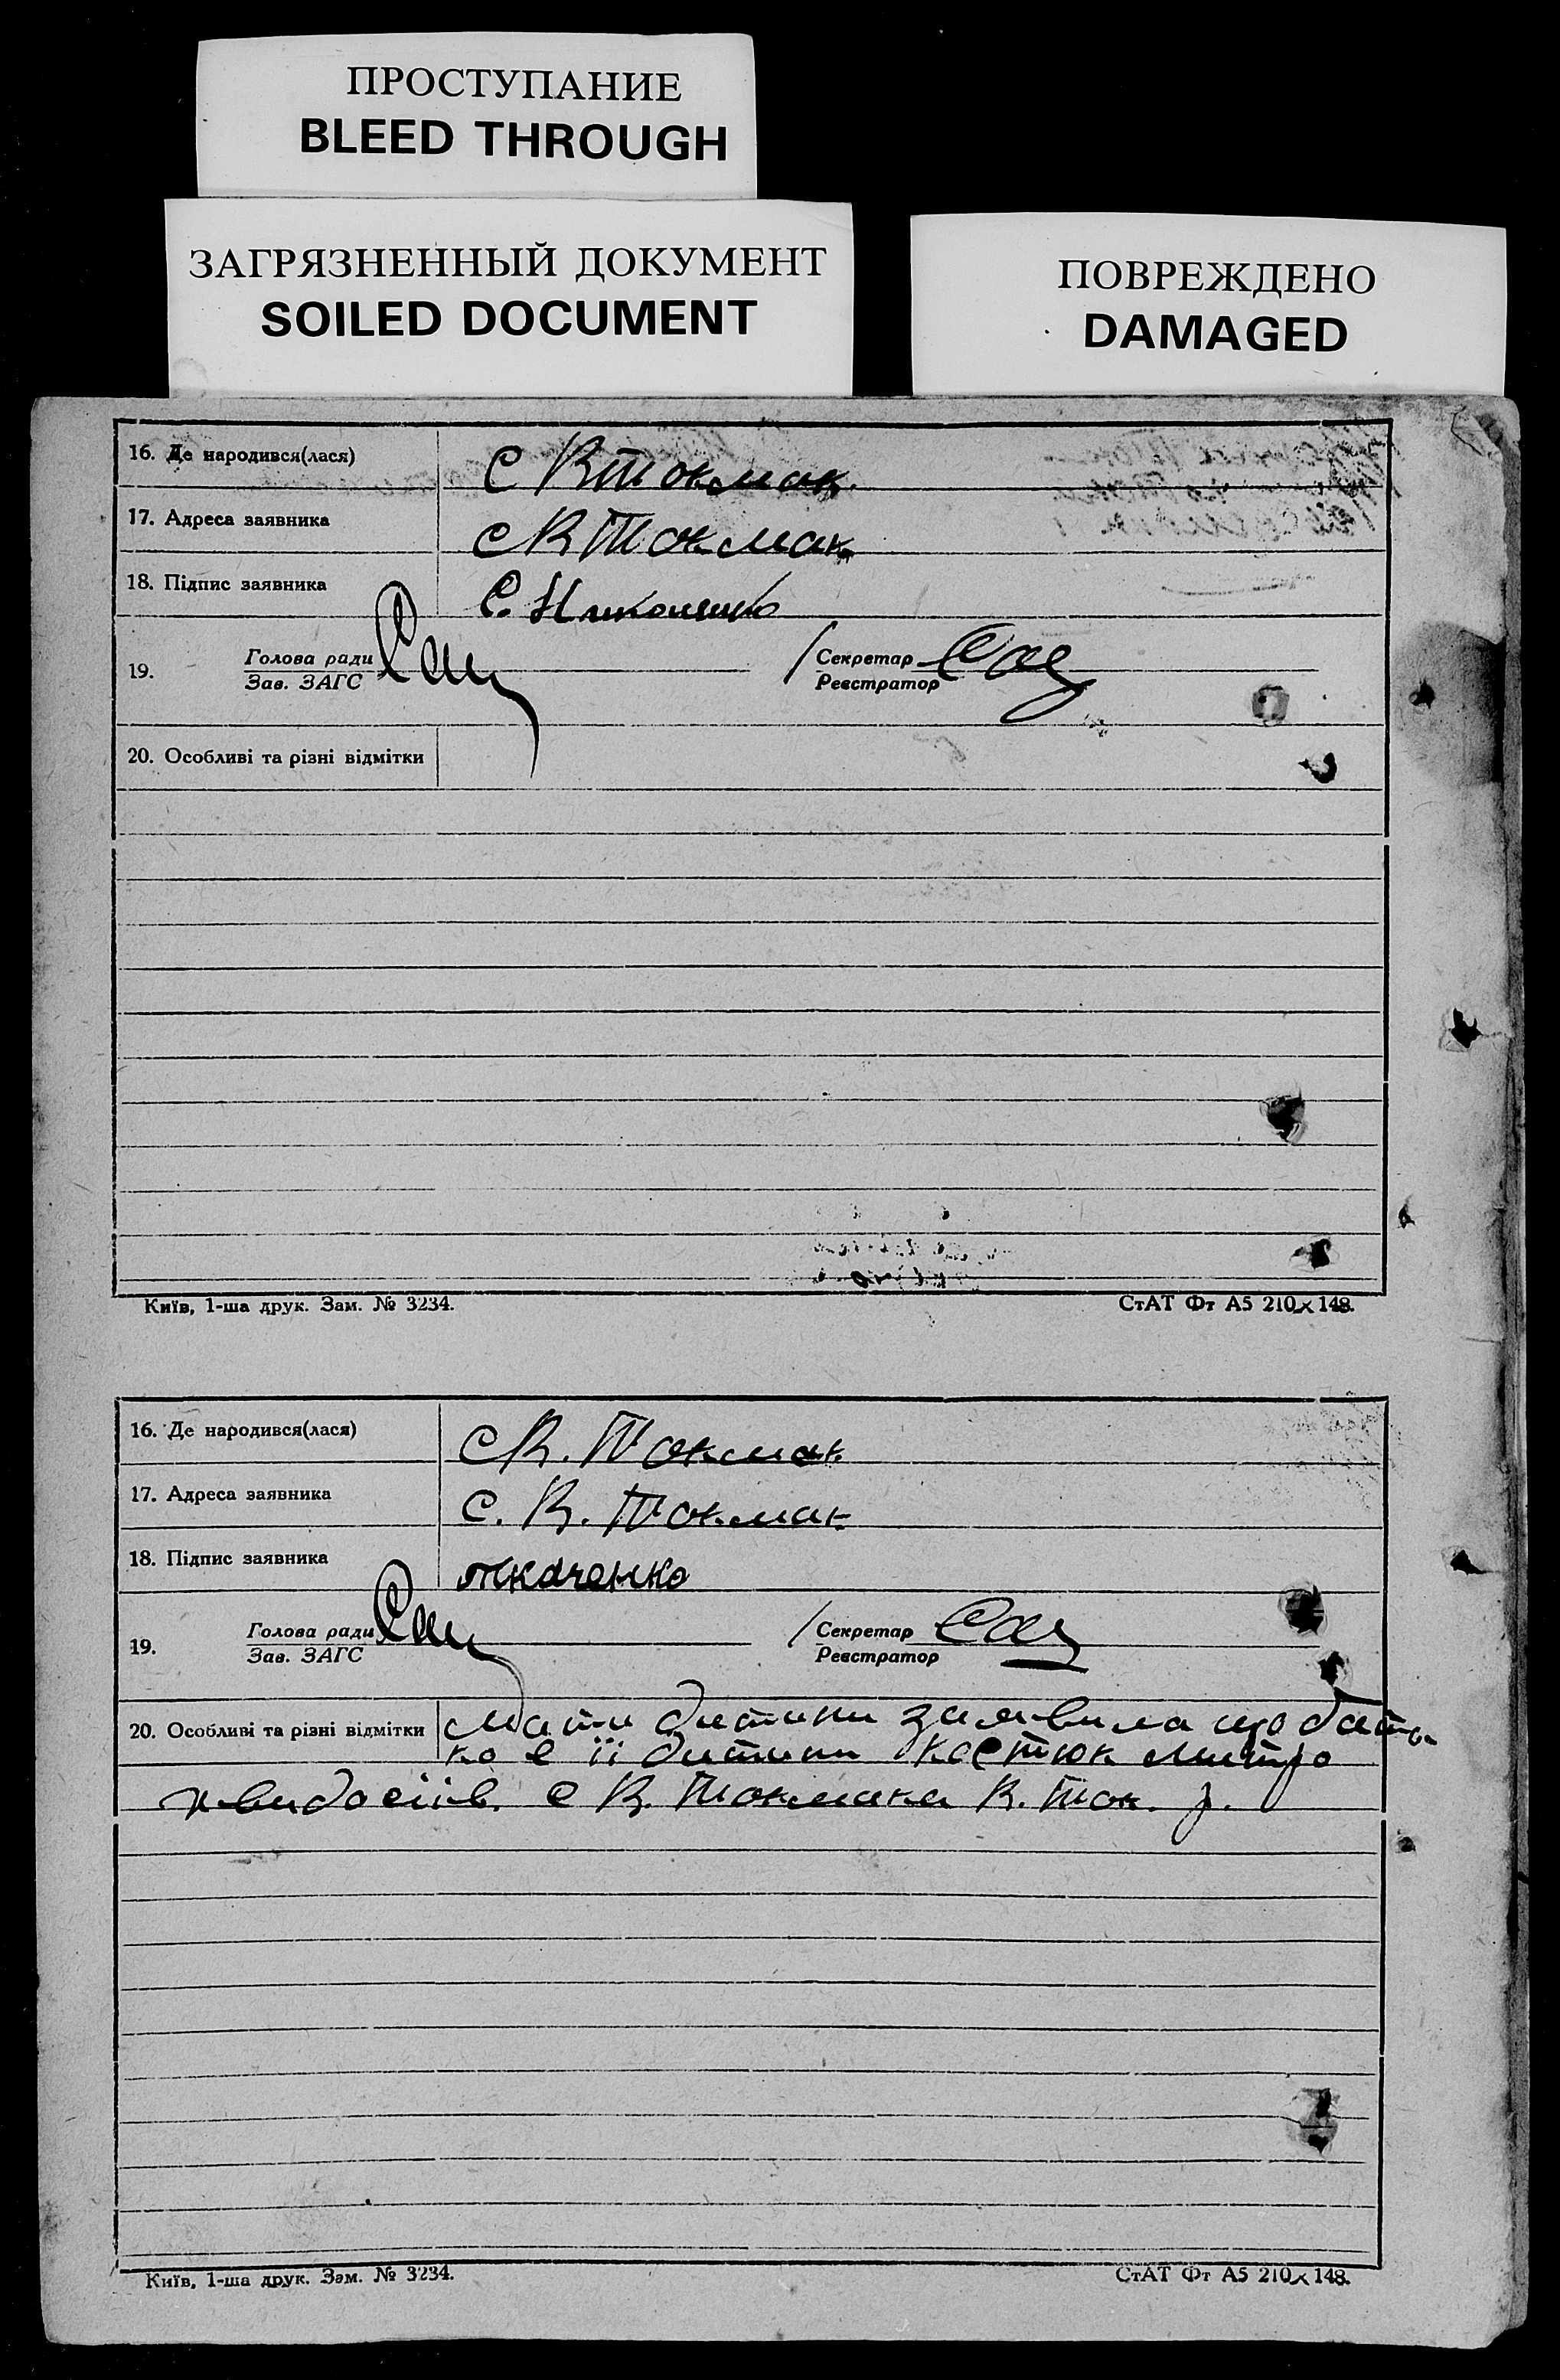 ПРОСТУПАНИЕ
BLEED THROUGH
ЗАГРЯЗНЕННЫЙ ДОКУМЕНТ
SOILED DOCUMENT
ПОВРЕЖДЕНО
DAMAGED
16. Де народився(лася) с В Токмак.
17. Адреса заявника с В Токмак
18. Підпис заявника С. Никоненко
19. Голова ради Секретар
Зав. ЗАГС Реєстратор
20. Особливі та різні відмітки
Київ, 1-ша друк. Зам. № 3234. СтАТ Фт А5 210×148.
16. Де народився(лася) с В. Токмак
17. Адреса заявника с. В. Токмак
18. Підпис заявника ткаченко
19. Голова ради Секретар
Зав. ЗАГС Реєстратор
20. Особливі та різні відмітки мати дитини заявила що бать
ко є її дитини костюк митро
с В. Токмака В. Ток. р.
Київ, 1-ша друк. Зам. № 3234. СтАТ Фт А5 210×148.